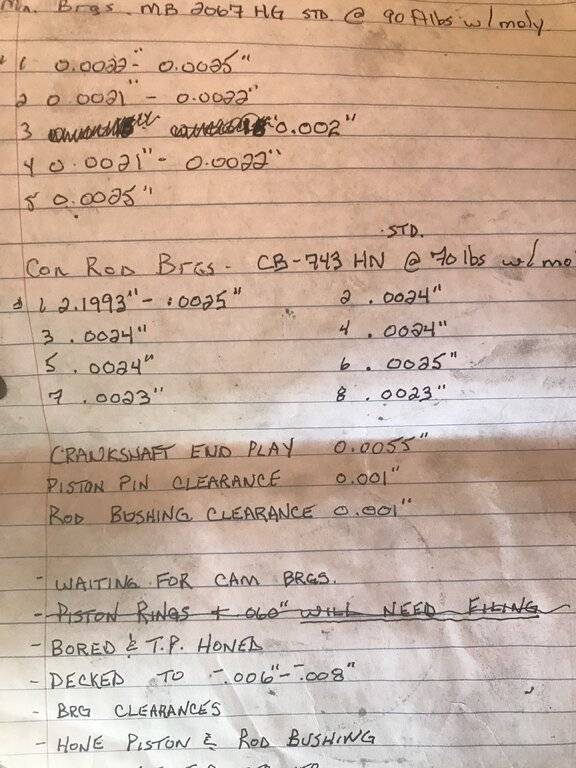 Mn. Brgs. MB 2067 HG STD @ 90 ftlbs w/moly
1 0.0022"- 0.0025"
2 0.0021" - 0.0022"
3 0.002"
4 0.0021"- 0.0022"
5 0.0025"
STD.
Con Rod Brgs- CB-743 HN @ 70 lbs w/mo
1 2.1993"- .0025" 2 .0024"
3 .0024" 4 .0024"
5 .0024" 6 .0025"
7 .0023" 8 .0023"
CRANKSHAFT END PLAY 0.0055"
PISTON PIN CLEARANCE 0.001"
ROD BUSHING CLEARANCE 0.001"
- WAITING FOR CAM BRGS.
- PISTON RINGS + 060" WILL NEED FILING
- BORED & T.P. HONED
- DECKED TO -.006"- -.008"
- BRG CLEARANCES
- HONE PISTON & ROD BUSHING